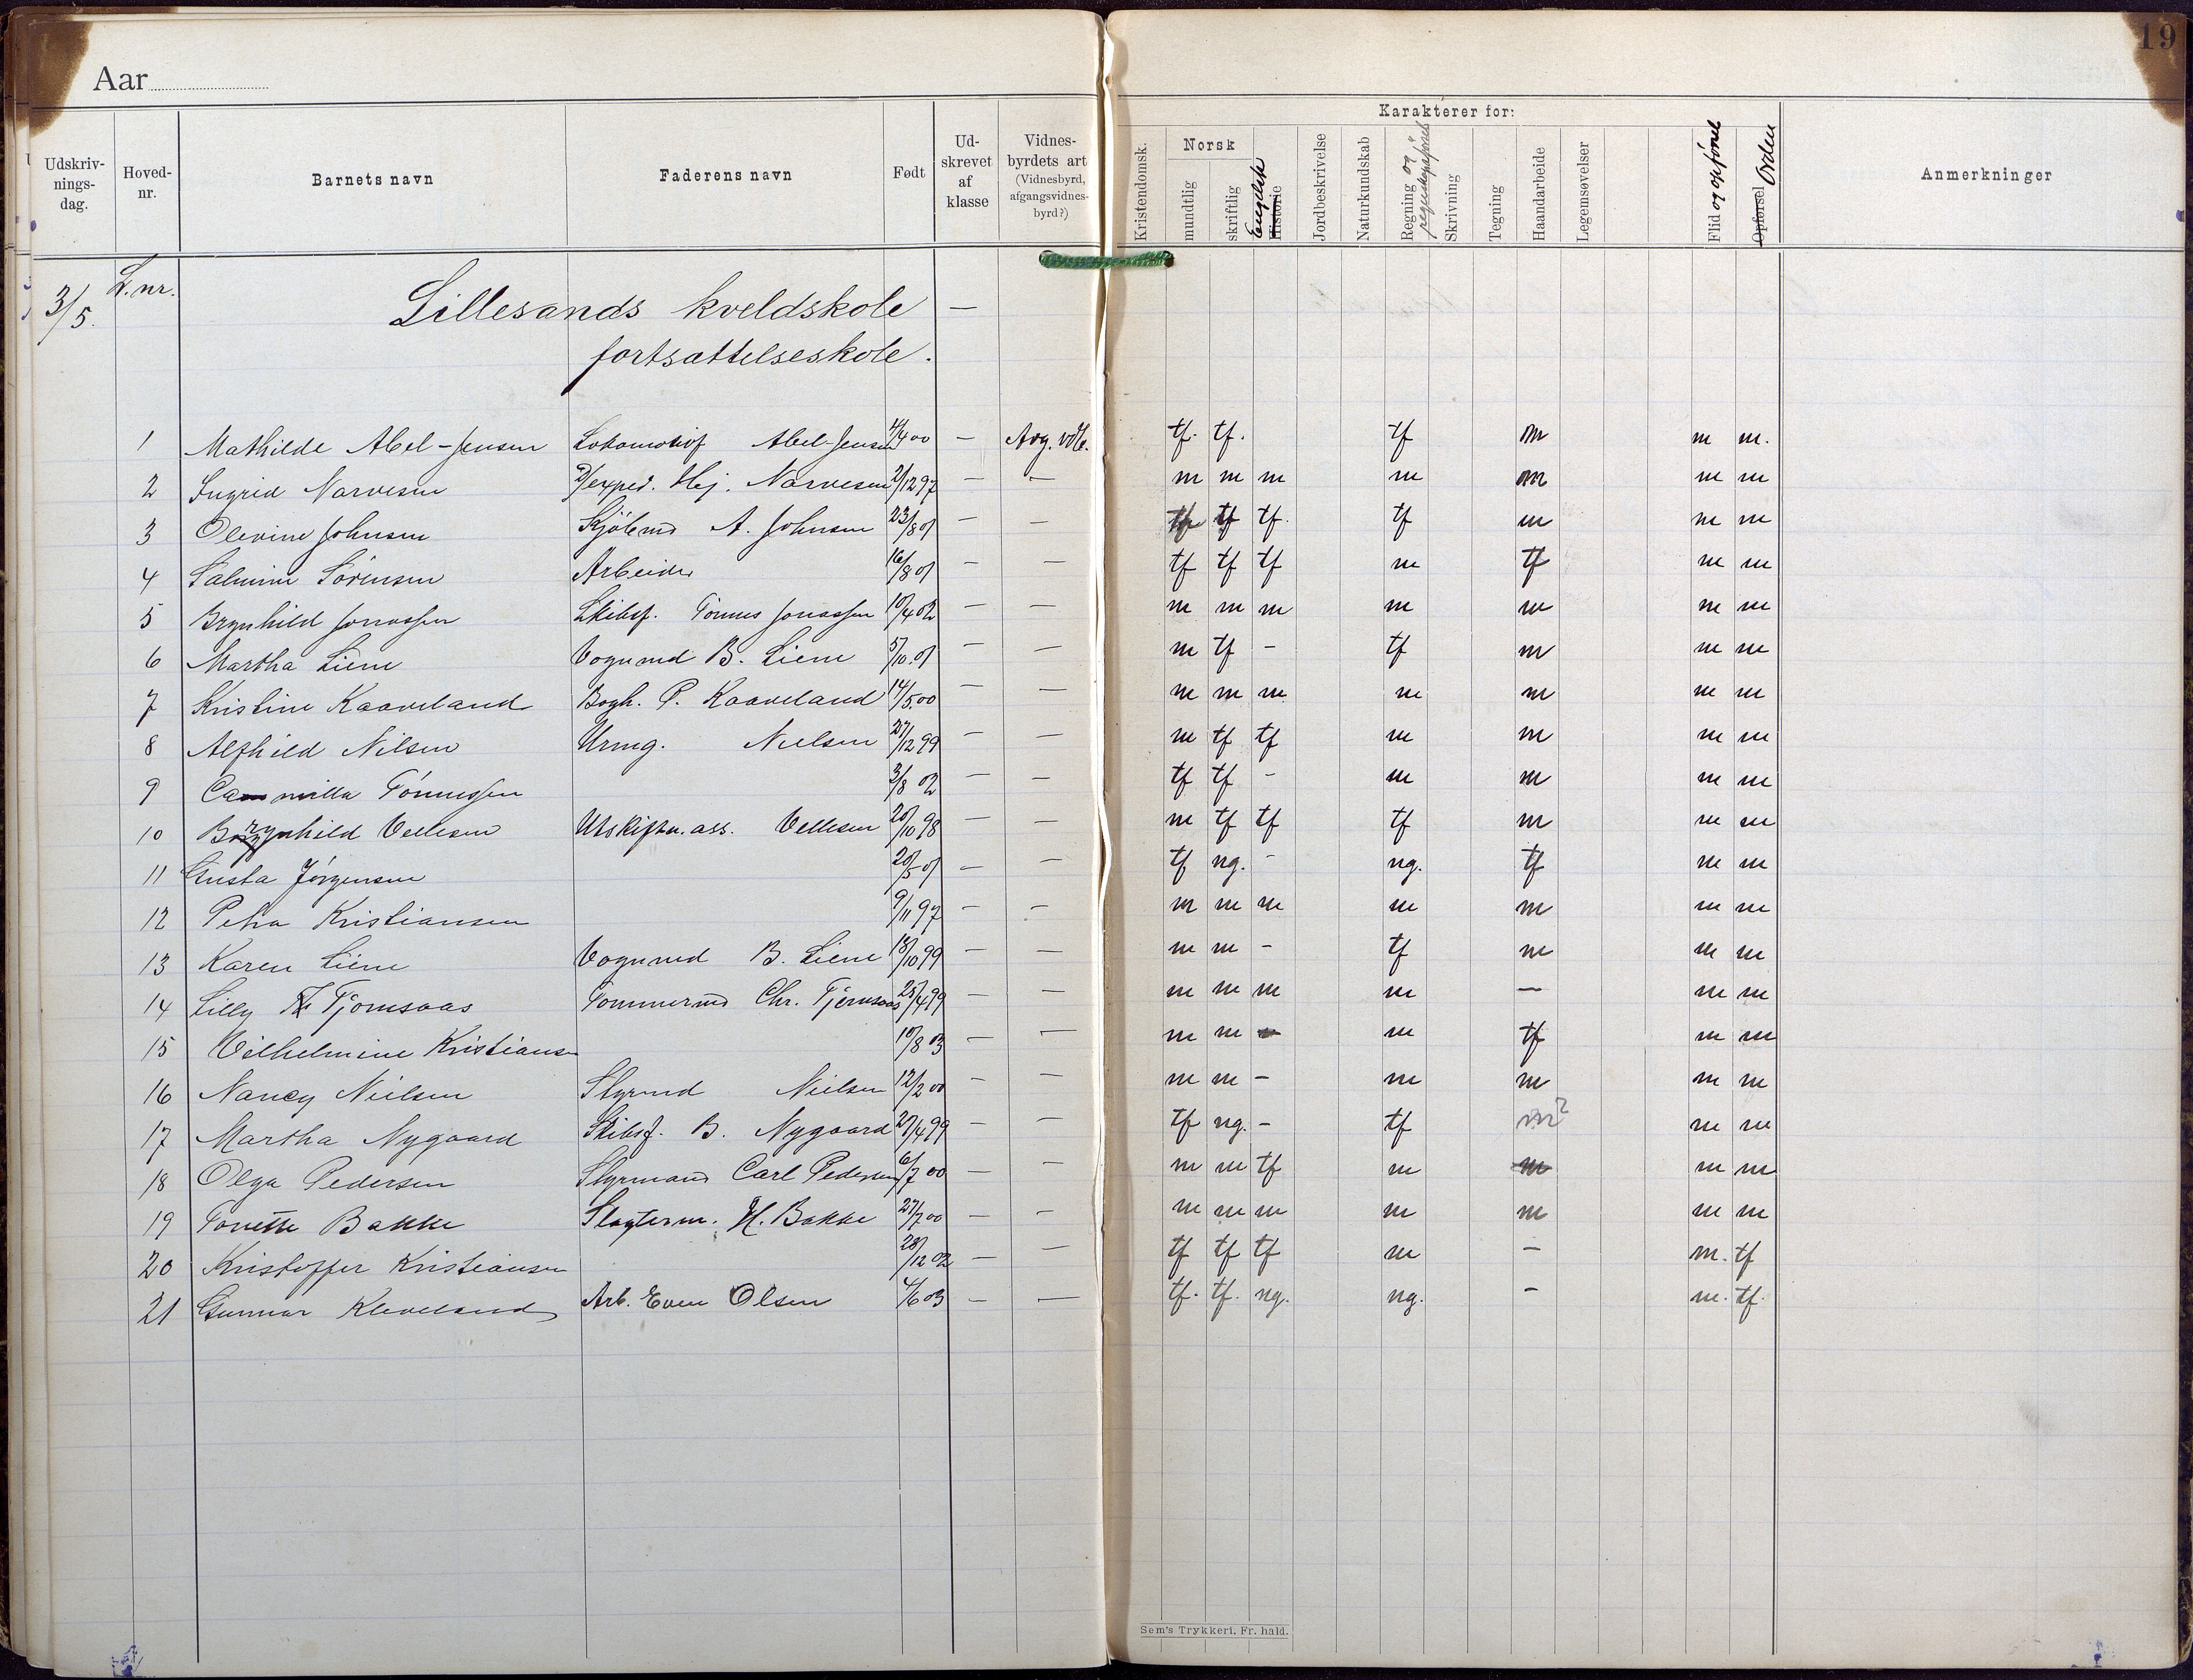 19
Aar
Karakterer for:
Udskriv-
nings-
dag.
Hoved-
nr.
Barnets navn
Faderens navn
Født
Ud-
skrevet
af
klasse
Vidnes-
byrdets art
(Vidnesbyrd,
afgangsvidnes-
byrd?)
Kristendomsk.
Norsk
mundtlig
skriftlig
Engelsk
Historie
Jordbeskrivelse
Naturkundskab
Regning og
regnskapsførsel
Skrivning
Tegning
Haandarbeide
Legemsøvelser
Flid og opførsel
Opførsel Orden
Anmerkninger
3/5. L. nr.
Lillesands kveldskole —
fortsættelseskole.
1 Mathilde Abel-Jensen Lokomotivf Abel-Jensen 4/4 00 — Avg. vdb. tf. tf. tf m m m.
2 Ingrid Narvesen exped. Hj. Narvesen 2/12 97 — — m m m m m m m
3 Olevine Johnsen Sjömd A. Johnsen 23/8 01 — — tf tf tf. tf m m m
4 Salmine Sörensen Arbeider 16/8 01 — — tf tf tf m tf m m
5 Brynhild Jonassen Skibsf. Tönnes Jonassen 10/4 02 — — m m m m m m m
6 Martha Liene Vognmd B. Liene 5/10.01 — — m tf - tf m m m
7 Kristine Kaaveland Bogh. P. Kaaveland 14/5.00 — — m m m m m m m
8 Alfhild Nilsen Urmg. Nielsen 27/12 99 — — m tf tf m m m m
9 Camilla Tönnessen 3/8 02 — — tf tf - m m m m
10 Brynhild Vellesen Utskiftn. ass. Vellesen 20/10 98 — — m tf tf tf m m m
11 Gusta Jörgensen 20/5 01 — — tf ng. - ng. tf m m
12 Petra Kristiansen 9/11 97 — — m m m m m m m
13 Karen Liene Vognmd B. Liene 18/10 99 — — m m - tf m m m
14 Lilly Tjomsaas Tömmermd Chr. Tjomsaas 25/4 99 — — m m m m — m m
15 Vilhelmine Kristiansen 10/8 03 — — m m - m tf m m
16 Nancy Nielsen Styrmd Nielsen 12/2 00 — — m m - m m m m
17 Martha Nygaard Skibsf. B. Nygaard 20/4 99 — — tf ng. - tf m? m m
18 Olga Pedersen Styrmand Carl Pedersen 6/7 00 — — m m tf m m m m
19 Tonette Bakke Slagterm. H. Bakke 27/7 00 — - m m m m m m m
20 Kristoffer Kristiansen 28/12 02 — — tf tf tf m - m. tf
21 Gunnar Kleveland Arb. Even Olsen 4/6 03 — — tf. tf. ng. ng. - m. tf.
Sem's Trykkeri, Fr. hald.